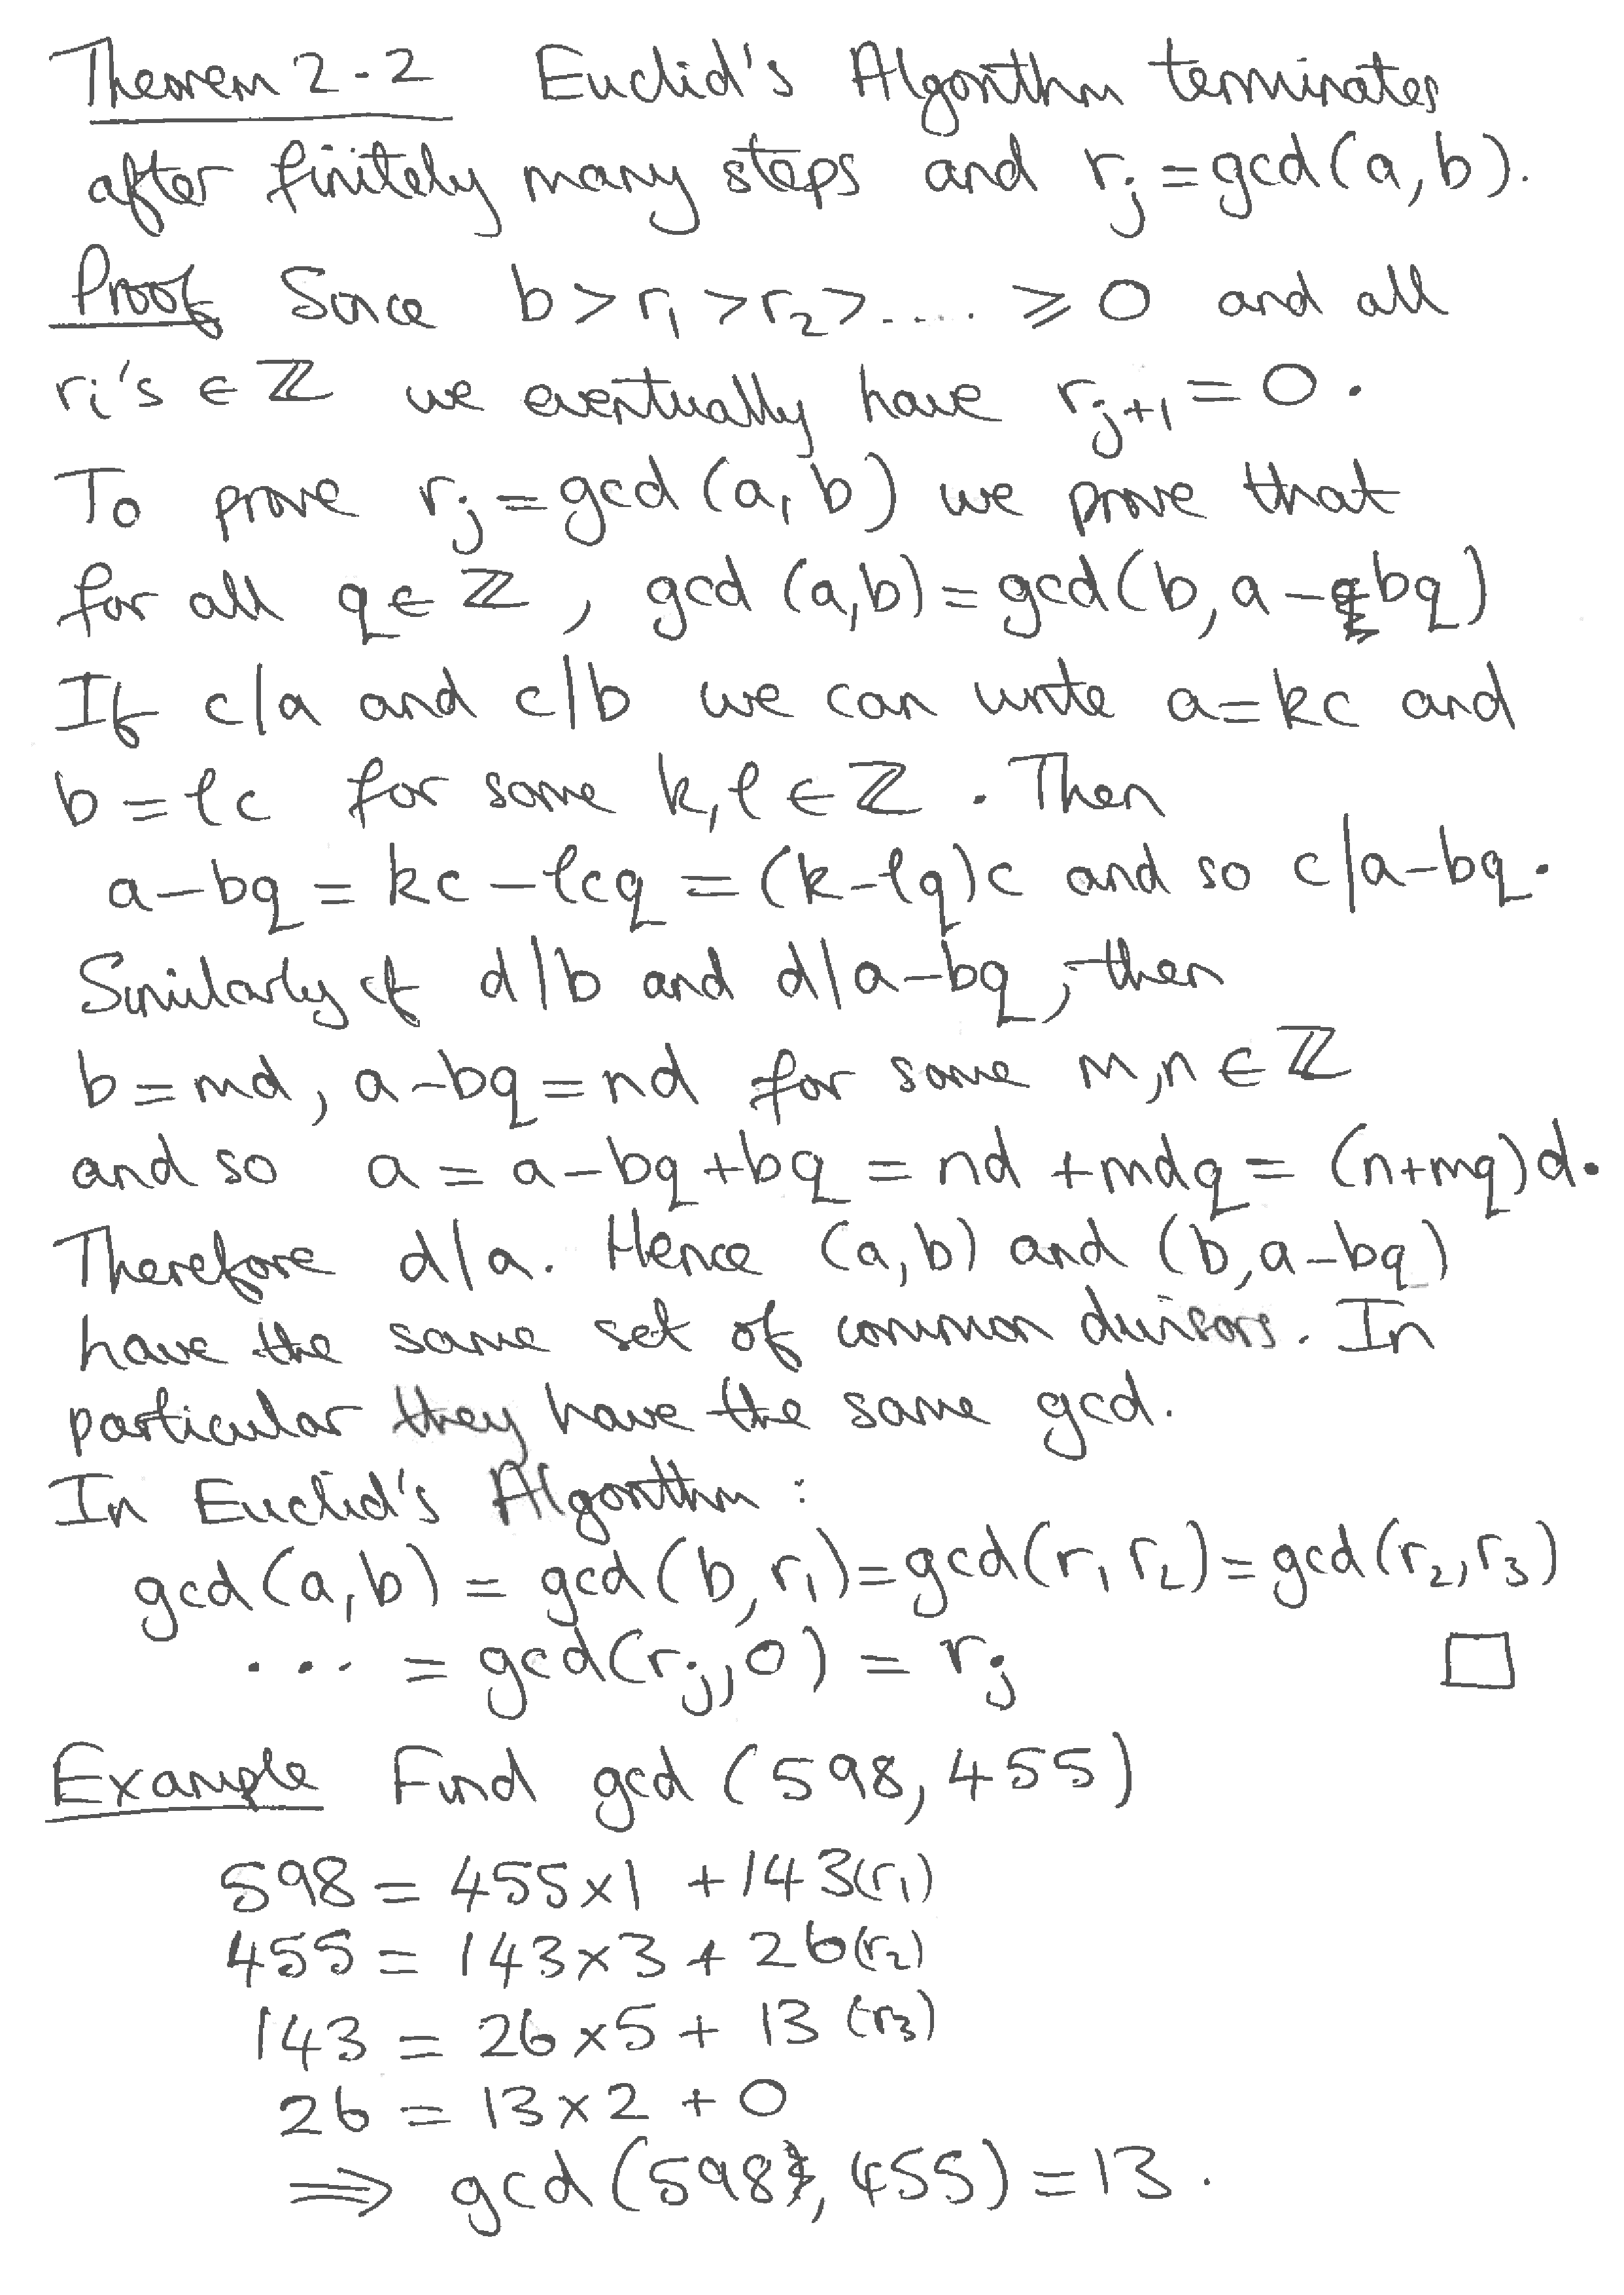 Theorem 2.2 Euclid's Algorithm terminates
after finitely many steps and r_j = gcd(a,b).
Proof Since b > r_1 > r_2 > .... ⩾ 0 and all
r_i's ∈ ℤ we eventually have r_{j+1} = 0.
To prove r_j = gcd(a,b) we prove that
for all q ∈ ℤ, gcd(a,b) = gcd(b, a-bq)
If c|a and c|b we can write a = kc and
b = ℓc for some k,ℓ ∈ ℤ. Then
a-bq = kc-ℓcq = (k-ℓq)c and so c|a-bq.
Similarly if d|b and d|a-bq, then
b = md, a-bq = nd for some m,n ∈ ℤ
and so a = a-bq+bq = nd+mdq = (n+mq)d.
Therefore d|a. Hence (a,b) and (b,a-bq)
have the same set of common divisors. In
particular they have the same gcd.
In Euclid's Algorithm:
gcd(a,b) = gcd(b,r_1) = gcd(r_1 r_2) = gcd(r_2,r_3)
... = gcd(r_j,0) = r_j □
Example Find gcd(598,455)
598 = 455×1 + 143(r_1)
455 = 143×3 + 26(r_2)
143 = 26×5 + 13 (r_3)
26 = 13×2 + 0
⇒ gcd(598,455) = 13.